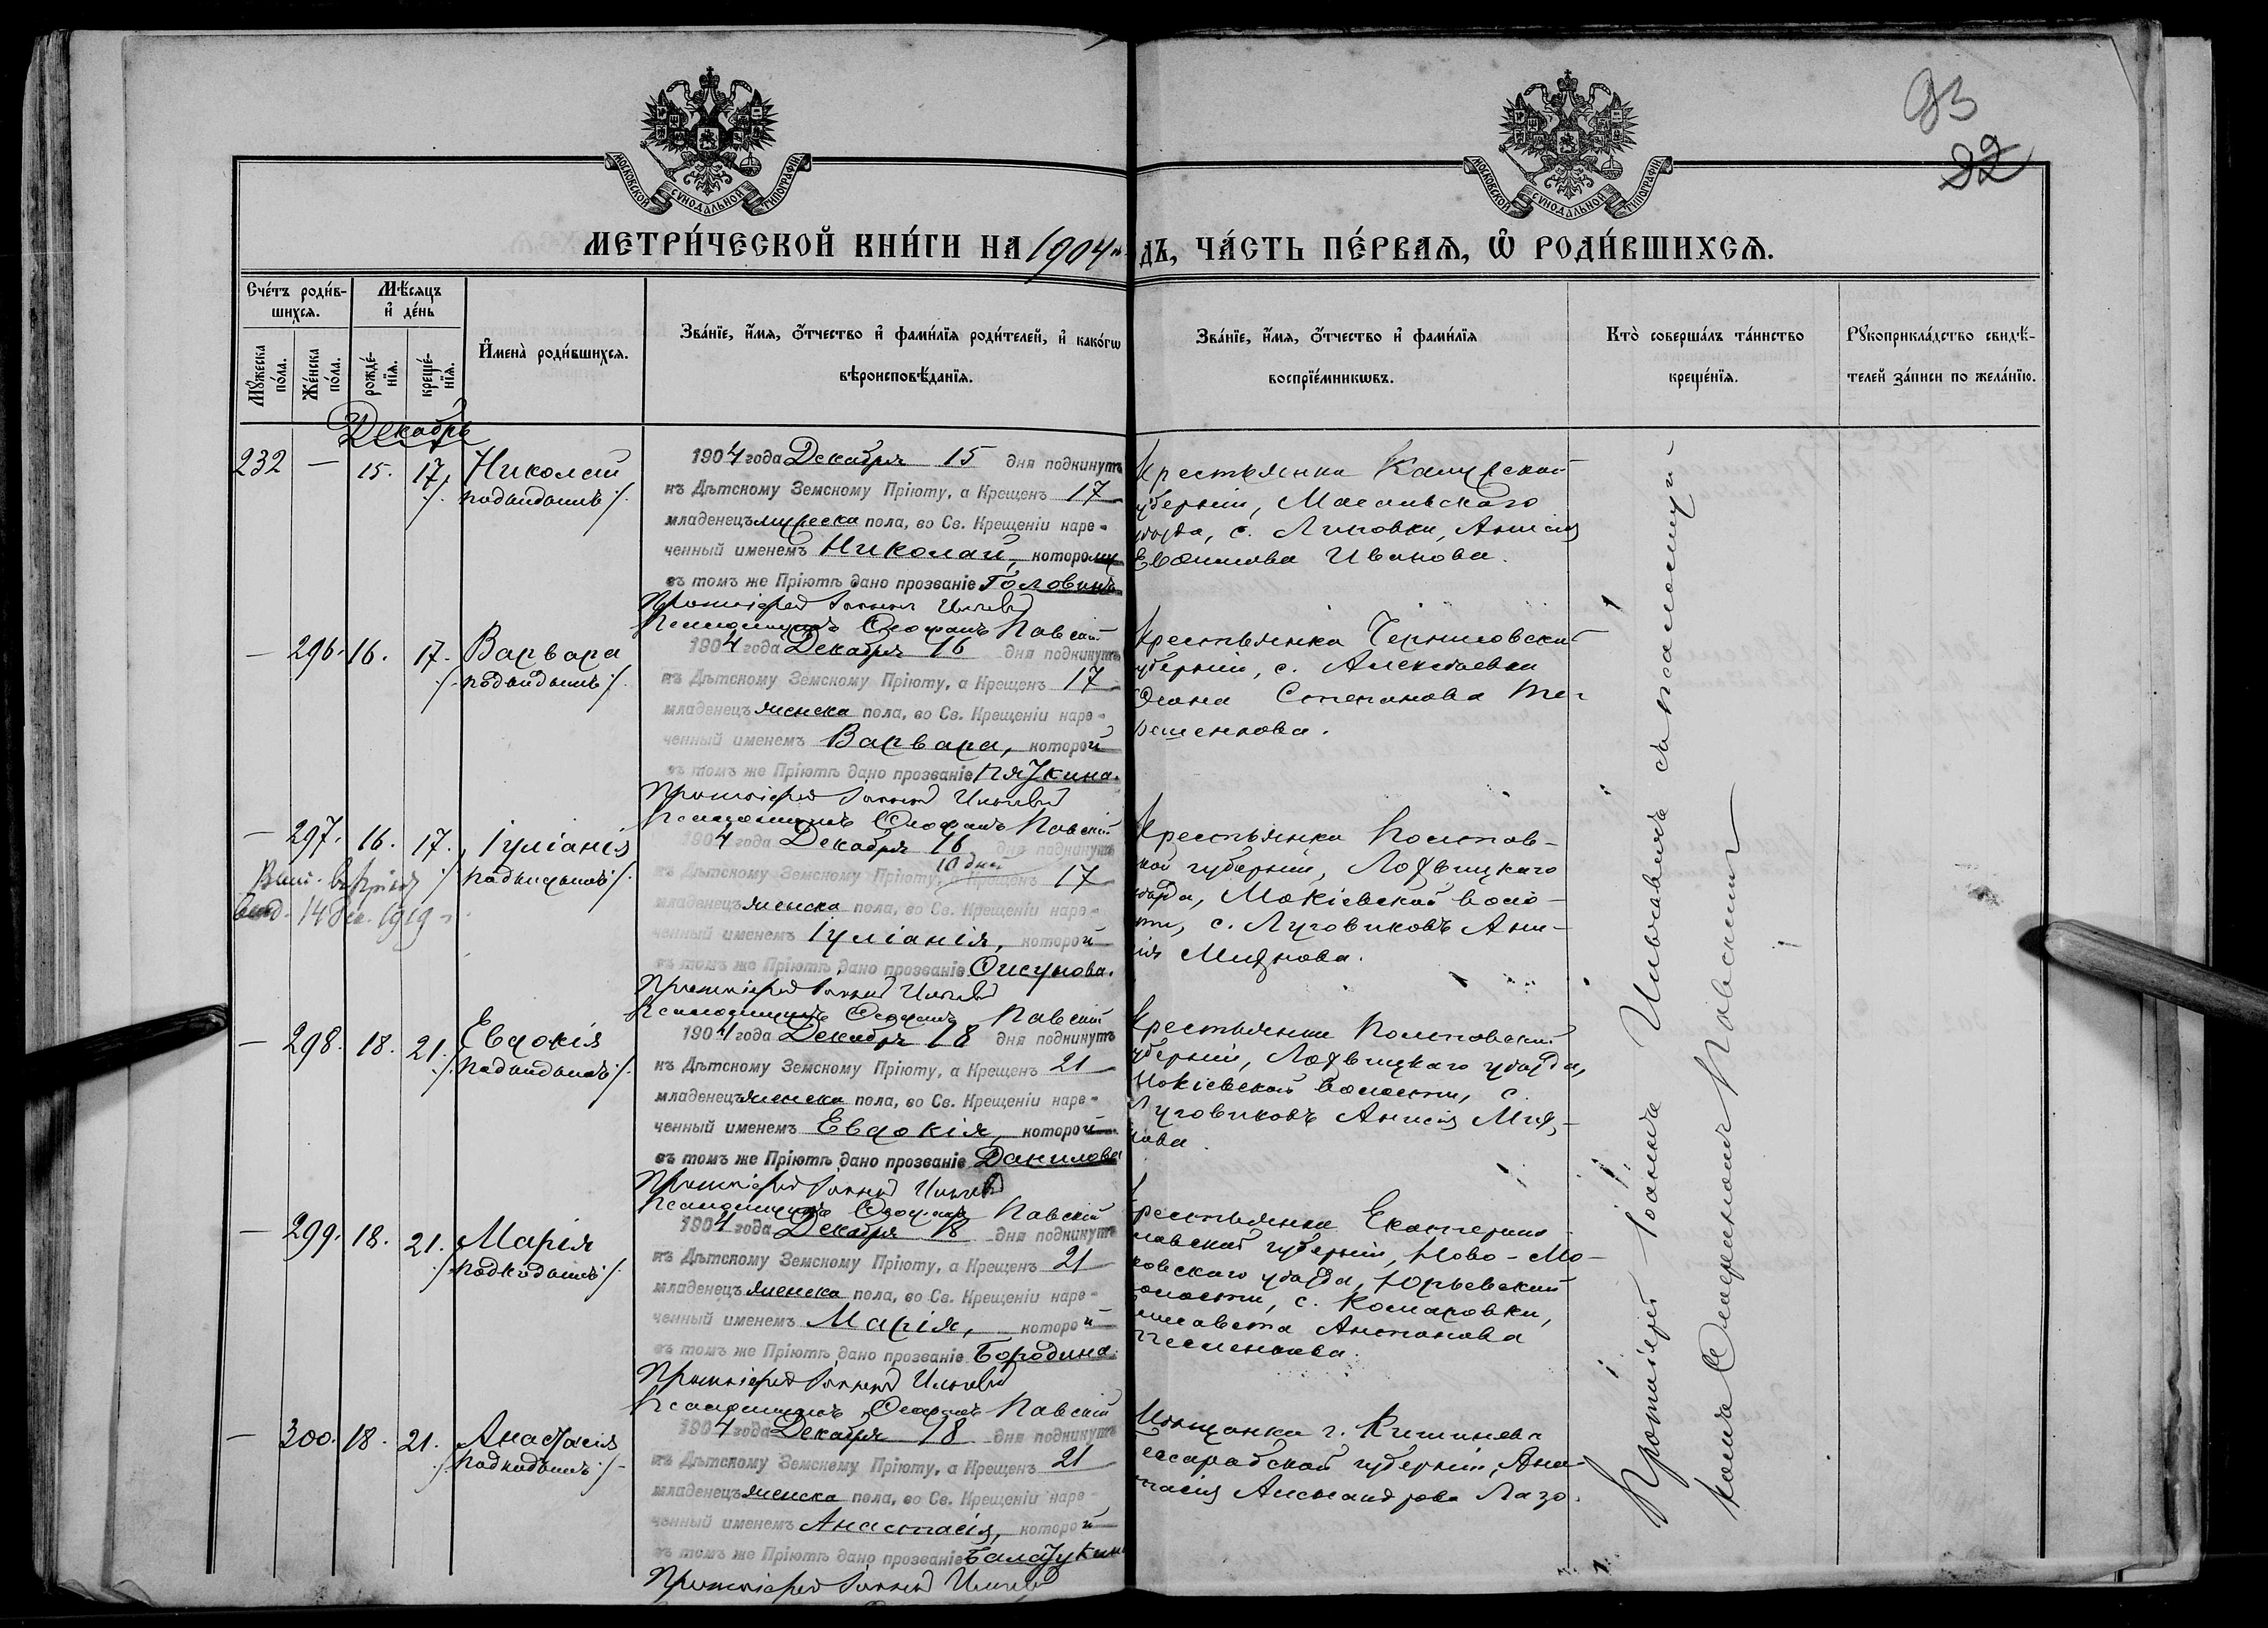 93
92
МОСКОВСКОЙ СУНОДАЛЬНОЙ ТИПОГРАФІИ
МОСКОВСКОЙ СУНОДАЛЬНОЙ ТИПОГРАФІИ
МЕТРИ́ЧЕСКОЙ КНИ́ГИ НА 1904 ДЪ, ЧА́СТЬ ПЕ́РВАѦ, Ѡ҆ РОДИ́ВШИХСѦ.
Сче́тъ роди́в-
шихсѧ.
Мѣ́сѧцъ
и҆ де́нь
Мꙋ́жеска
по́ла.
Же́нска
по́ла.
рожде́-
нїѧ.
креще́-
нїѧ.
И҆мена̀ роди́вшихсѧ.
Зва́нїе, и҆́мѧ, ѻ҆́тчество и҆ фами́лїѧ роди́телей, и҆ како́гѡ
вѣроисповѣ́данїѧ.
Зва́нїе, и҆́мѧ, ѻ҆́тчество и҆ фами́лїѧ
воспрїе́мникѡвъ.
Кто̀ соверша́лъ та́инство
креще́нїѧ.
Рꙋкоприкла́дство свидѣ́-
телей за́писи по жела́нїю.
Декабрь
232 — 15. 17. Николай
подкидышъ
1904 года Декабря 15 дня подкинутъ
къ Дѣтскому Земскому Пріюту, а Крещенъ 17
младенецъ мужеска пола, во Св. Крещеніи наре-
ченный именемъ Николай, которому
въ томъ же Пріютѣ дано прозваніе Головинъ
Протоіерей Іоаннъ
Псаломщикъ Павскій
Крестьянка Калужской
губерніи, Масальскаго
уѣзда, с. Липовки, Анисія
Евфимова Иванова.
— 296. 16. 17. Варвара
подкидышъ
1904 года Декабря 16 дня подкинутъ
къ Дѣтскому Земскому Пріюту, а Крещенъ 17
младенецъ женска пола, во Св. Крещеніи наре-
ченный именемъ Варвара, которой
въ томъ же Пріютѣ дано прозваніе
Протоіерей Іоаннъ
Псаломщикъ Павскій
Крестьянка Черниговской
губерніи, с. Алексѣевки
Степанова Те-
рещенкова.
— 297. 16. 17. Іуліанія
подкидышъ
14 1919
1904 года Декабря 16 дня подкинутъ
10 дней
къ Дѣтскому Земскому Пріюту, а Крещенъ 17
младенецъ женска пола, во Св. Крещеніи наре-
ченный именемъ Іуліанія, которой
въ томъ же Пріютѣ дано прозваніе
Протоіерей Іоаннъ
Псаломщикъ Павскій
Крестьянка Полтав-
ской губерніи, Лохвицкаго
уѣзда, Мокіевской воло-
сти, с. Луговиковъ Ани-
сія
— 298. 18. 21. Евдокія
подкидышъ
1904 года Декабря 18 дня подкинутъ
къ Дѣтскому Земскому Пріюту, а Крещенъ 21
младенецъ женска пола, во Св. Крещеніи наре-
ченный именемъ Евдокія, которой
въ томъ же Пріютѣ дано прозваніе Данилова
Протоіерей Іоаннъ
Псаломщикъ Павскій
Крестьянка Полтавской
губерніи, Лохвицкаго уѣзда,
Мокіевской волости, с.
Луговиковъ Анисія
— 299. 18. 21. Марія
подкидышъ
1904 года Декабря 18 дня подкинутъ
къ Дѣтскому Земскому Пріюту, а Крещенъ 21
младенецъ женска пола, во Св. Крещеніи наре-
ченный именемъ Марія, которой
въ томъ же Пріютѣ дано прозваніе Бородина.
Протоіерей Іоаннъ
Псаломщикъ Павскій
Крестьянка Екатерино-
славской губерніи, Ново-Мо-
сковскаго уѣзда, Юрьевской
волости, с. Комаровки,
Елисавета Антонова
— 300. 18. 21. Анастасія
подкидышъ
1904 года Декабря 18 дня подкинутъ
къ Дѣтскому Земскому Пріюту, а Крещенъ 21
младенецъ женска пола, во Св. Крещеніи наре-
ченный именемъ Анастасія, которой
въ томъ же Пріютѣ дано прозваніе
Протоіерей Іоаннъ
Мѣщанка г. Кишинева
Бессарабской губерніи, Ана-
стасія Александрова Лазо.
Протоіерей Іоаннъ съ псаломщи-
комъ Павскимъ